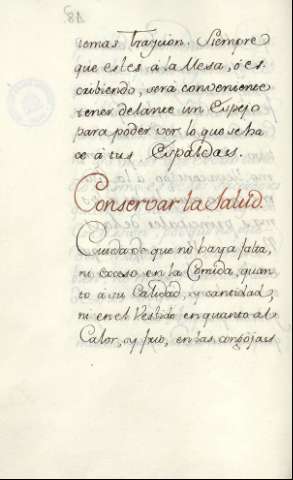 48
temas Traycion. Siempre
que estes à la Mesa, ò es
cribiendo, serà conveniente
tener delante un Espejo
para poder ver lo que se ha
ce à tus Espaldas.
Conservar la Salud.
Cuida de que no haya falta,
ni exceso en la Comida, quan
to à su Calidad, y cantidad,
ni en el Vestido en quanto al
Calor, y frio, en las congojas